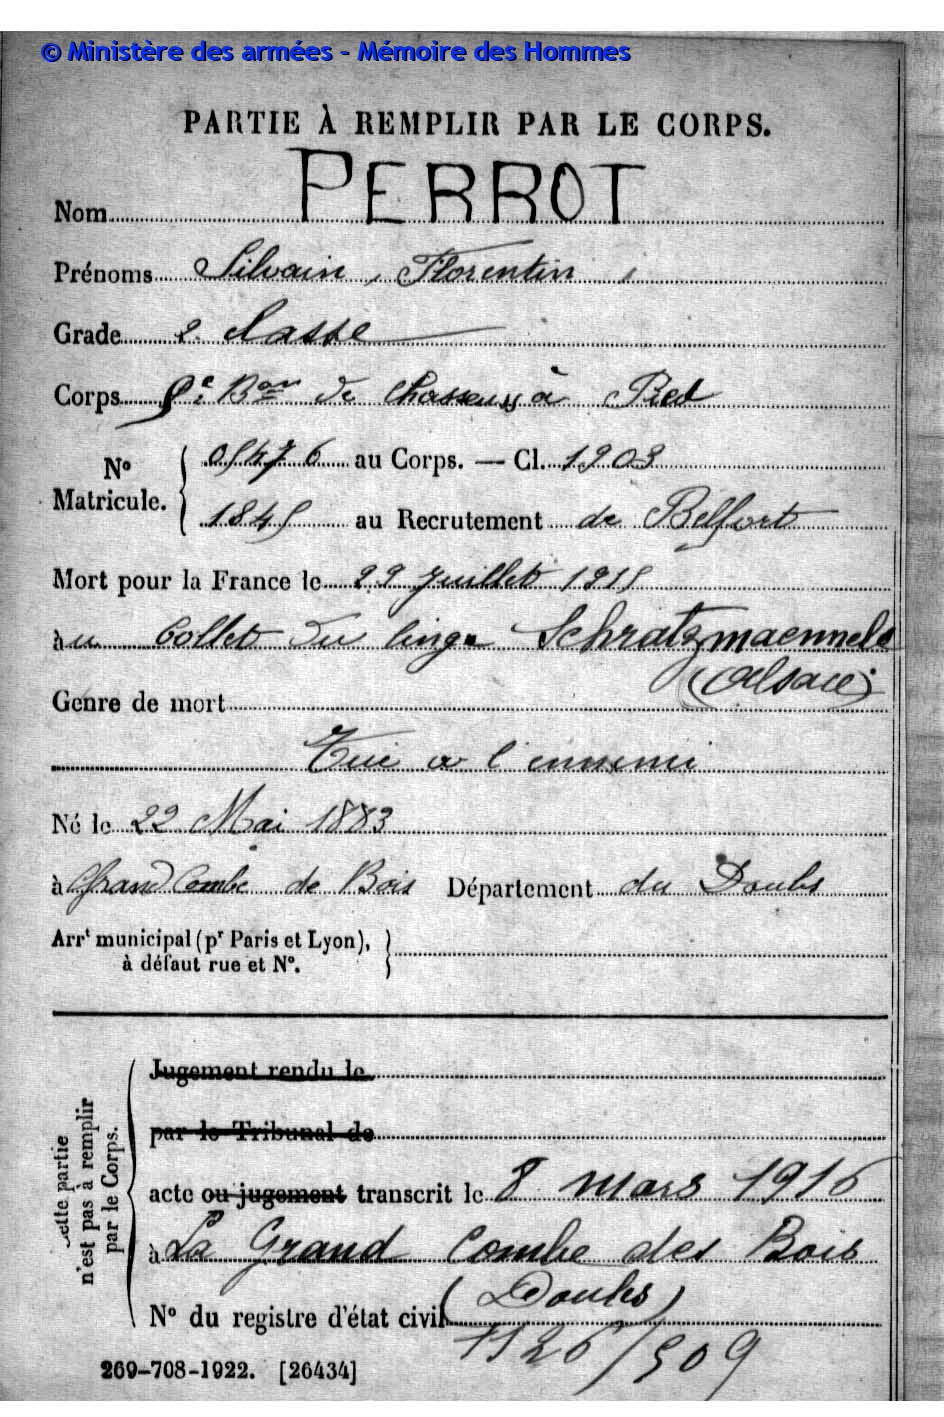 © Ministère des armées - Mémoire des Hommes
PARTIE À REMPLIR PAR LE CORPS.
Nom PERROT
Prénoms Silvain, Florentin,
Grade 2. classe
Corps 5e Bon de Chasseurs à Pied
No Matricule. 05476 au Corps. — Cl. 1903
1845 au Recrutement de Belfort
Mort pour la France le 29 Juillet 1915
au Collet du linge Schratzmaennele
(Alsace)
Genre de mort
Tué a l'ennemi
Né le 22 Mai 1883
à Grand Combe de Bois Département du Doubs
Arrt municipal (pr Paris et Lyon),
à défaut rue et No.
Cette partie
n'est pas à remplir
par le Corps.
Jugement rendu le
par le Tribunal de
acte ou jugement transcrit le 8 mars 1916
à La Grand Combe des Bois
(Doubs)
No du registre d'état civil
1126/509
269-708-1922. [26434]